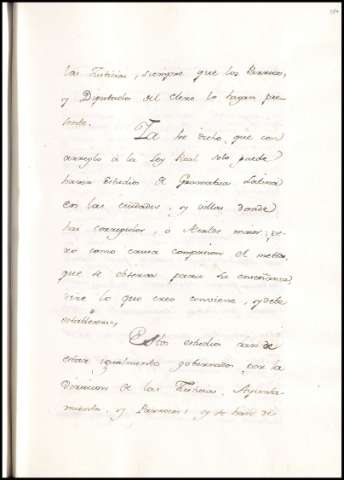 las Justicias, siempre que los Parrocos,
y Diputados del Clero lo hagan pre-
sente.
Ya he dicho, que con
arreglo à la Ley Real solo puede
haver estudios de Gramatica Latina
en las ciudades, y villas donde
hai corregidor, ò Alcalde maior; pe-
ro como causa compasion el metodo
que se observa para la enseñanza
dire lo que creo conviene, y debe
establecerse,
Estos estudios han de
estar igualmente gobernados, por la
Direccion de las Justicias, Ayunta-
miento, y Parrocos; y se han de